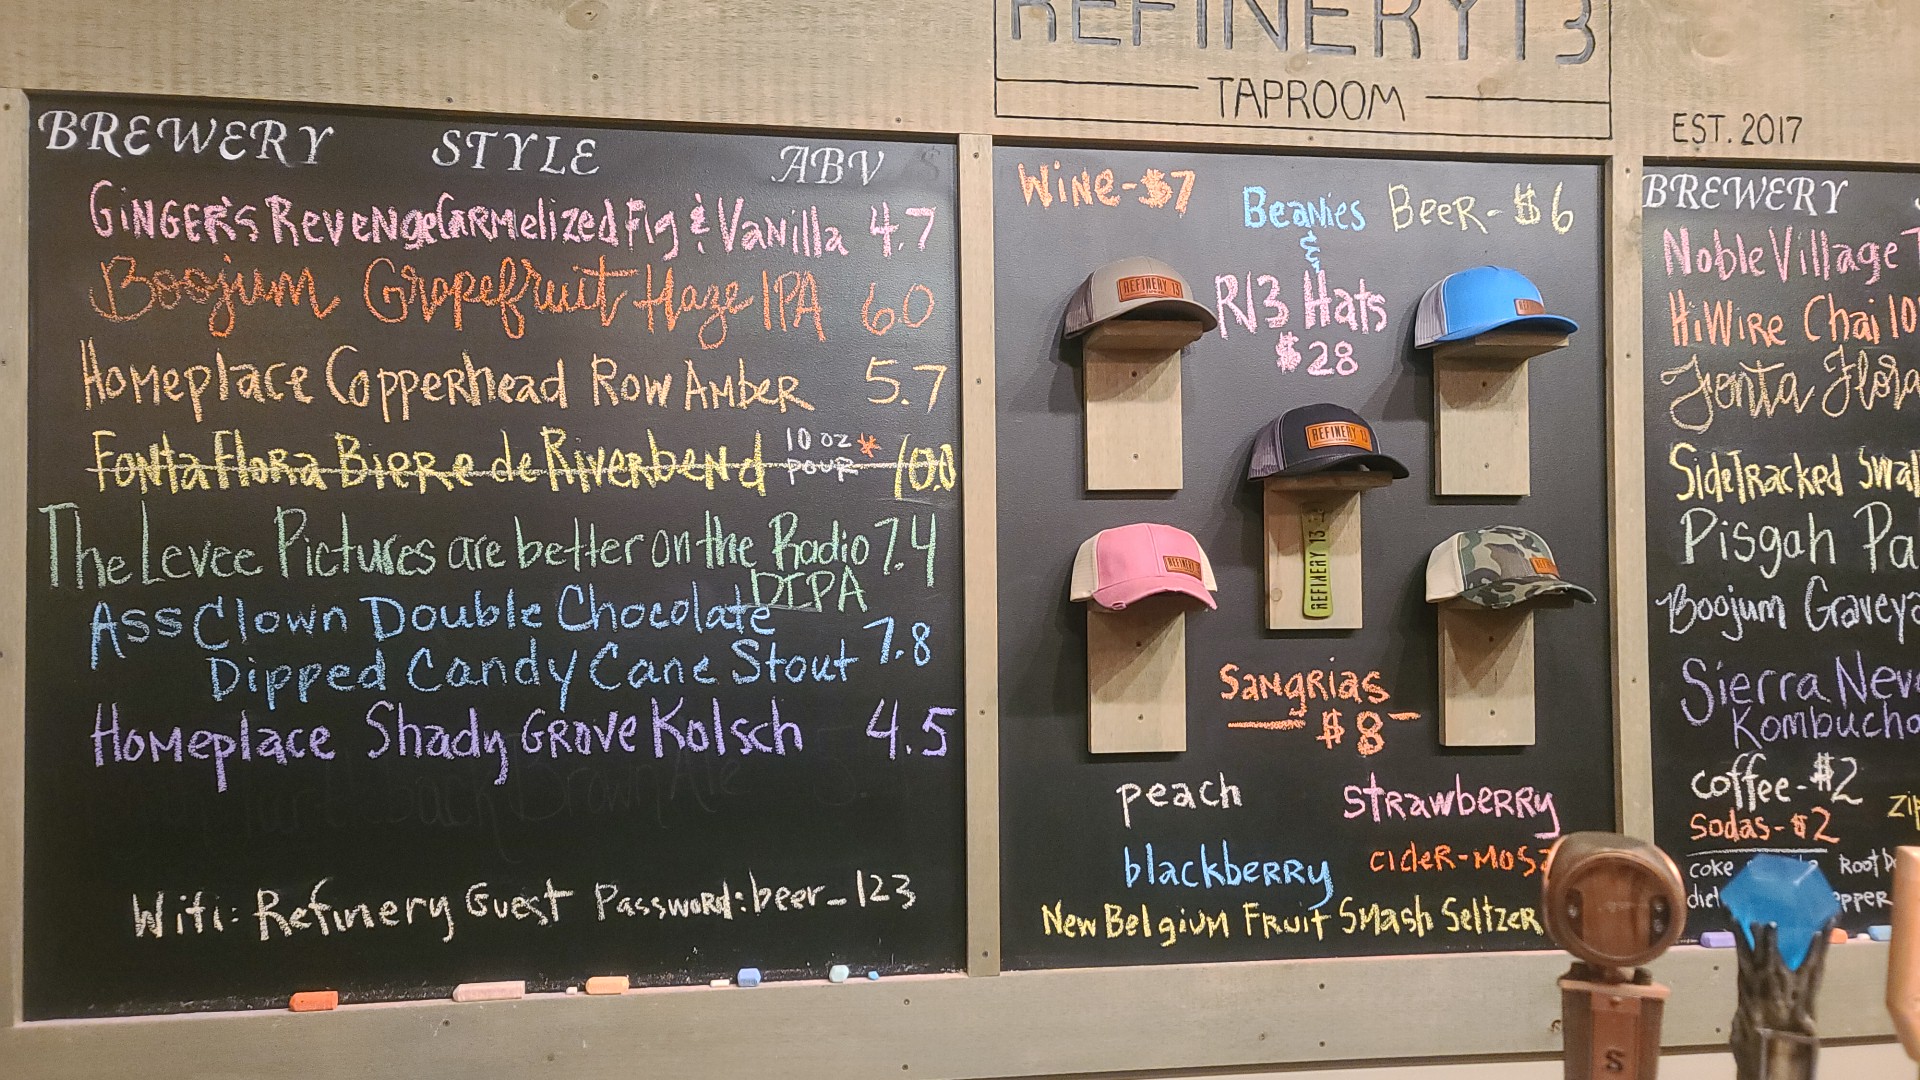 REFINERY 13
TAPROOM
EST. 2017
BREWERY STYLE ABV $
GINGER'S REVENGE CARMelized Fig & Vanilla 4.7
Boojum Grapefruit Haze IPA 6.0
Homeplace Copperhead Row Amber 5.7
Fonta Flora Biere de Riverbend 10 oz * 10.0
pour
The Levee Pictures are better on the Radio 7.4
DIPA
Ass Clown Double Chocolate
Dipped Candy Cane Stout 7.8
Homeplace Shady Grove Kolsch 4.5
Brown Ale
Wifi: Refinery Guest Password: beer_123
Wine-$7
Beanies
&
R13 Hats
$28
Beer-$6
REFINERY 13
REFINERY 13
REFINERY 13
Sangrias
$8
peach strawberry
blackberry cider-mosa
New Belgium Fruit Smash Seltzer
BREWERY
Noble Village
HiWire Chai 10
Fonta Flora
SideTracked
Pisgah Pa
Boojum Graveya
Sierra Neva
Kombucha
coffee-$2
sodas-$2
coke Root
diet pepper
S